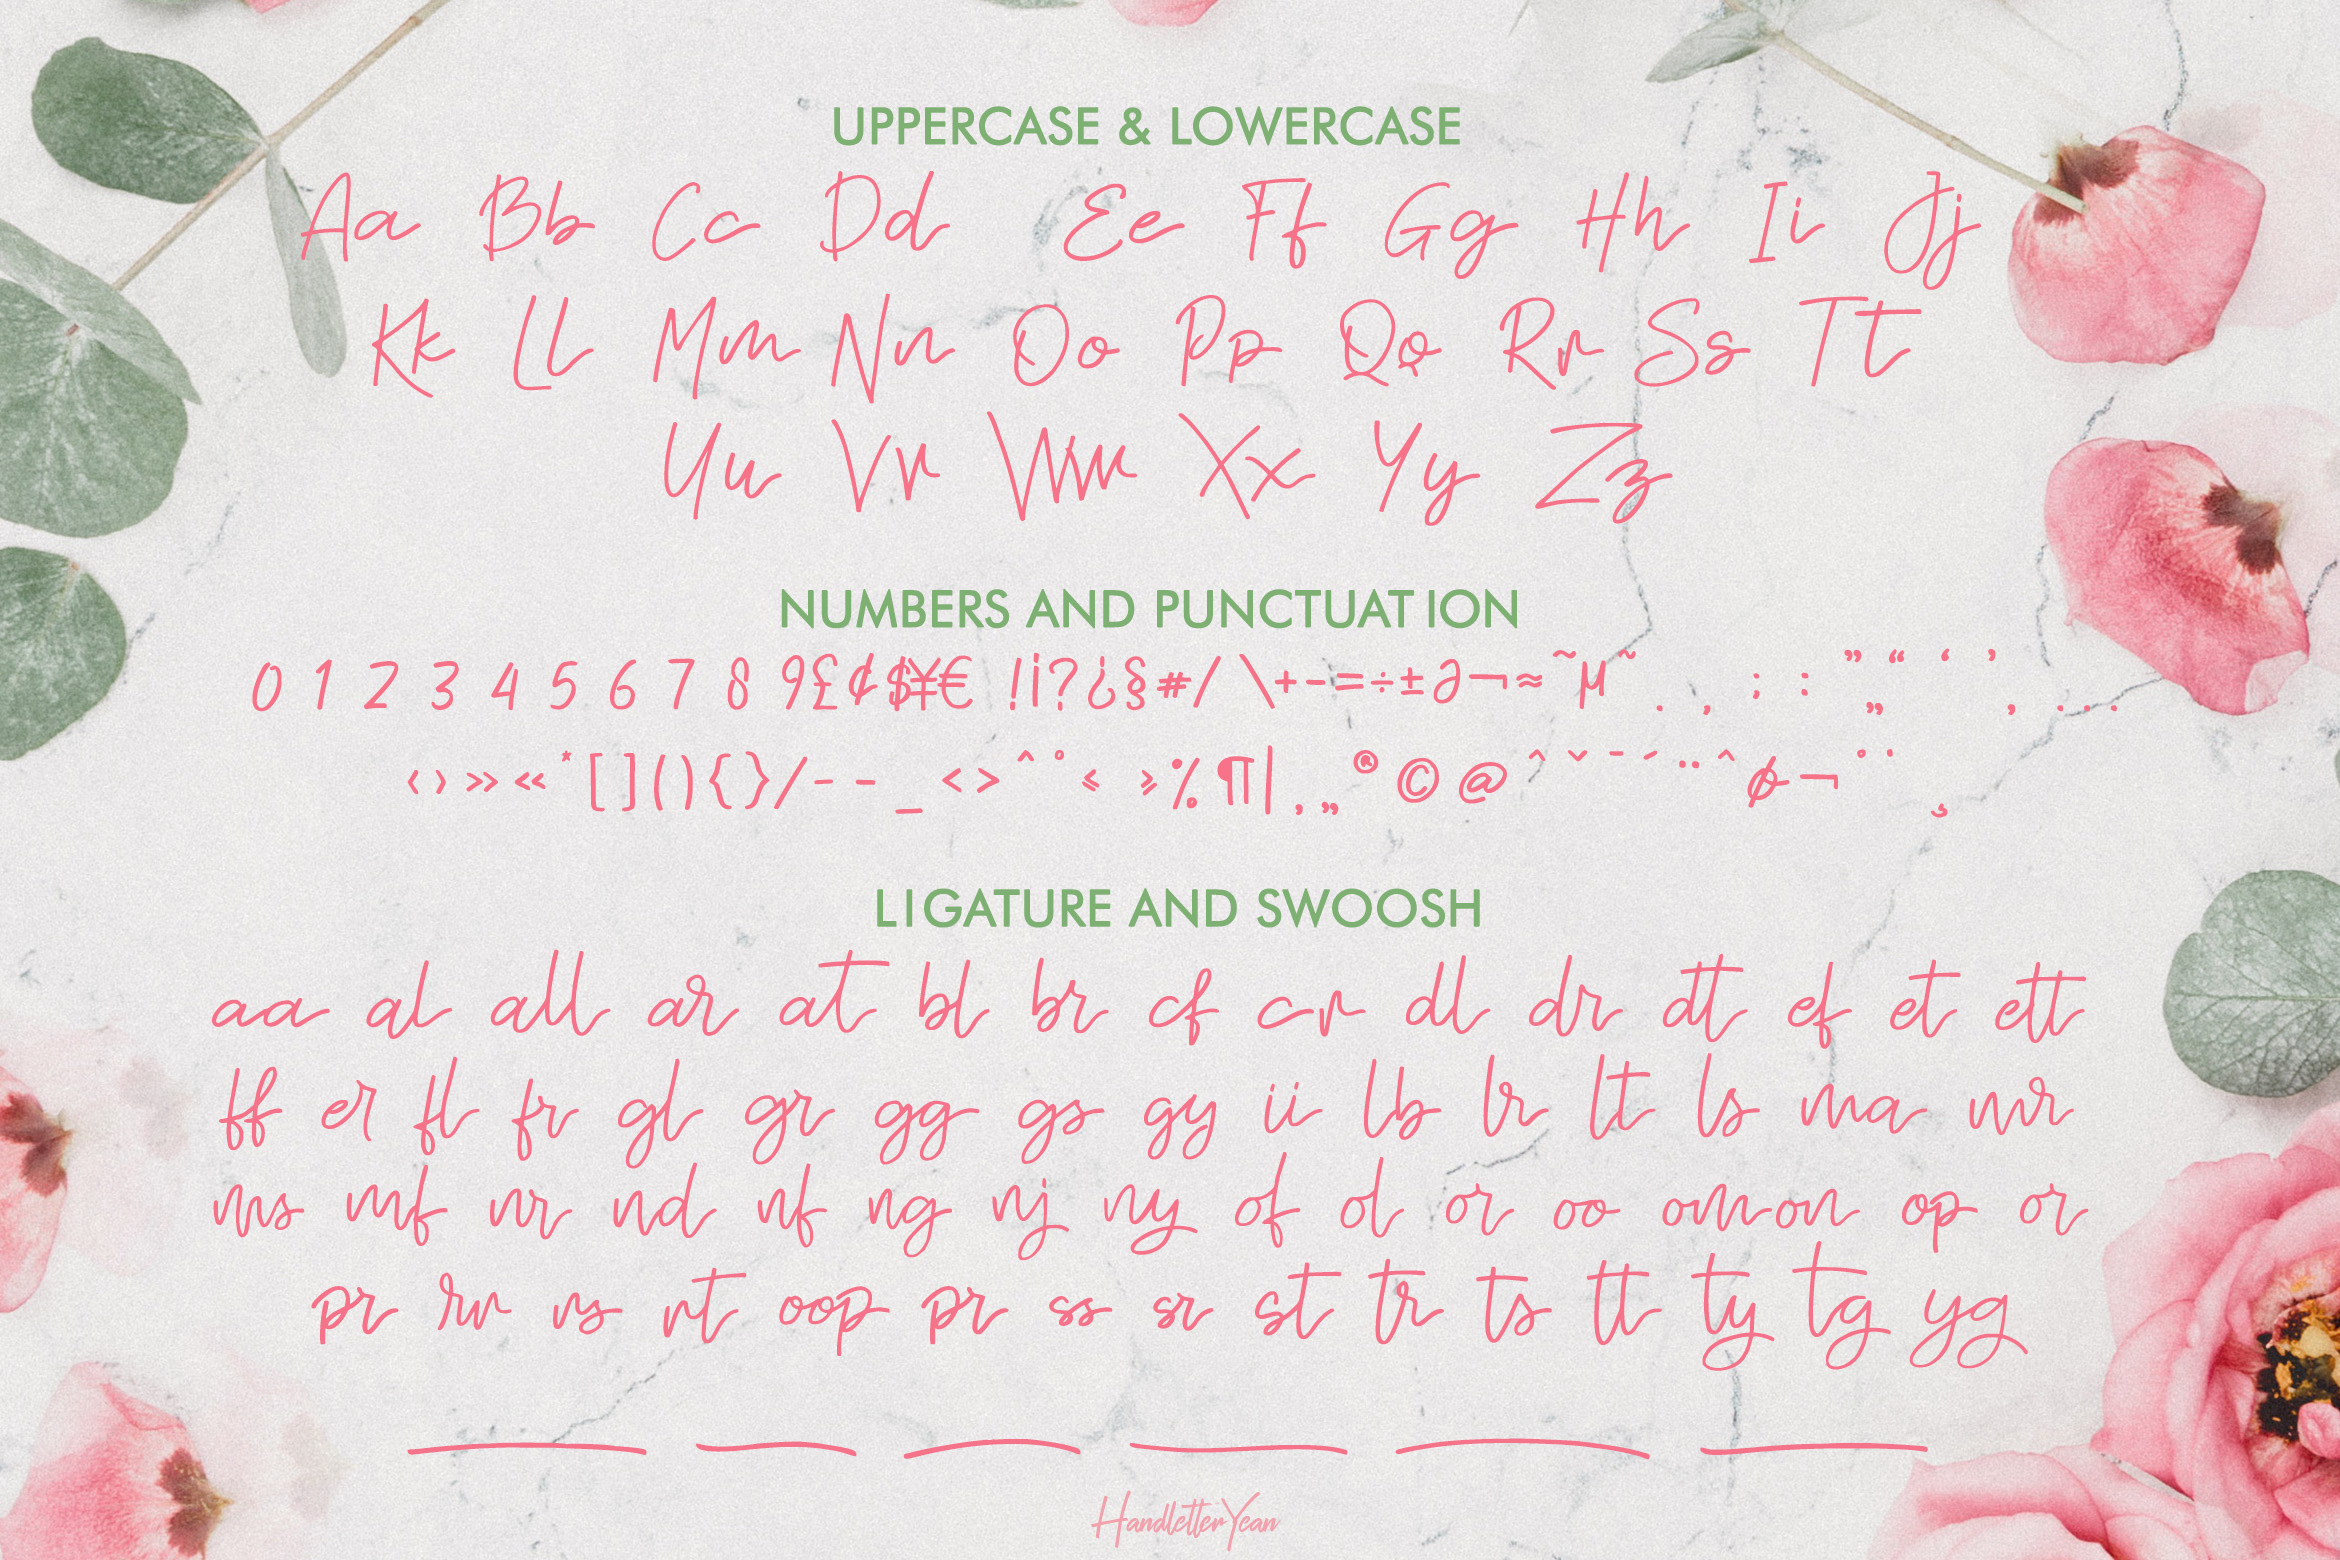 UPPERCASE & LOWERCASE
Aa Bb Cc Dd Ee Ff Gg Hh Ii Jj
Kk Ll Mm Nn Oo Pp Qq Rr Ss Tt
Uu Vv Ww Xx Yy Zz
NUMBERS AND PUNCTUATION
0 1 2 3 4 5 6 7 8 9 £ ¢ $ ¥ € ! ¡ ? ¿ § # / \ + - = ÷ ± ∂ ¬ ≈ ~ µ ~ . , ; : ” „ “ ‘ ’ , . . .
‹ › » « * [ ] ( ) { } / - - _ < > ^ ° ≤ ≥ % ¶ | , „ ® © @ ^ ˇ ¯ ´ ¨ ^ ø ¬ ° ˙ ¸
LIGATURE AND SWOOSH
aa al all ar at bl br cf cr dl dr dt ef et ett
ff er fl fr gl gr gg gs gy ii lb lr lt ls ma mr
ms mf nr nd nf ng nj ny of ol or oo om on op or
pr rv rs rt oop pr ss sr st tr ts tt ty tg yg
HandletterYean